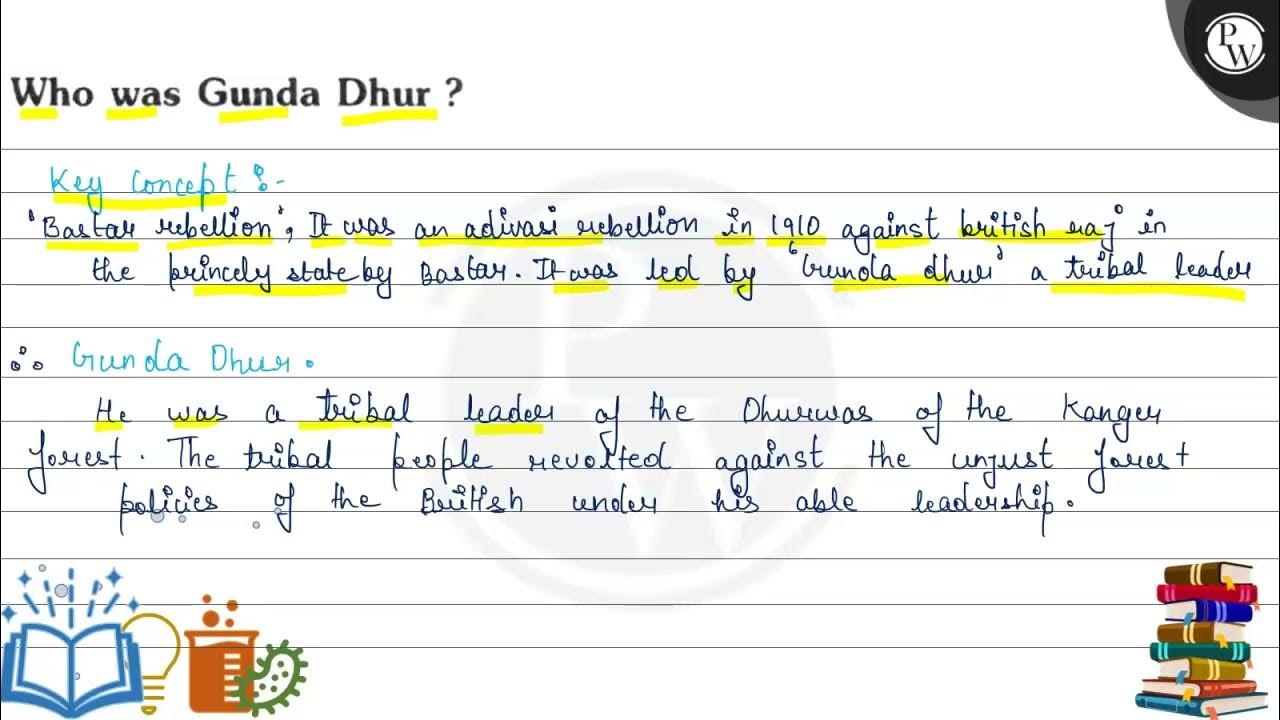 PW
Who was Gunda Dhur ?
Key Concept :-
'Bastar rebellion', It was an adivasi rebellion in 1910 against british raj in
the princely state by Bastar. It was led by 'Gunda dhur' a tribal leader
∴ Gunda Dhur.
He was a tribal leader of the Dhurwas of the Kanger
forest. The tribal people revolted against the unjust forest
policies of the British under his able leadership.